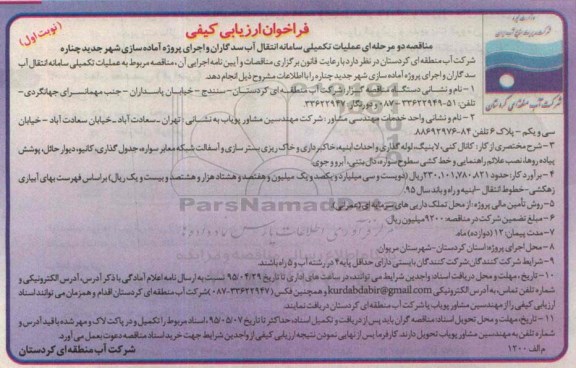 فراخوان ارزیابی کیفی
(نوبت اول)
مناقصه دو مرحله ای عملیات تکمیلی سامانه انتقال آب سد گاران و اجرای پروژه آماده سازی شهر جدید چناره
شرکت آب منطقه ای کردستان در نظر دارد با رعایت قانون برگزاری مناقصات و آیین نامه اجرایی آن، مناقصه مربوط به عملیات تکمیلی سامانه انتقال آب
سد گاران و اجرای پروژه آماده سازی شهر جدید چناره را با اطلاعات مشروح ذیل انجام دهد.
۱- نام و نشانی دستگاه مناقصه گزار: شرکت آب منطقه ای کردستان- سنندج - خیابان پاسداران - جنب مهمانسرای جهانگردی-
تلفن ۵۱-۳۳۶۲۲۹۴۹-۰۸۷ و دورنگار ۳۳۶۲۲۹۴۷
۲- نام و نشانی واحد خدمات مهندسی مشاور: شرکت مهندسین مشاور پویاب به نشانی: تهران - سعادت آباد - خیابان
سی و یکم - پلاک ۶ تلفن ۸۴-۸۸۶۹۲۹۷۶
۳- شرح مختصری از کار: کانال کنی، لاینینگ، لوله گذاری و احداث ابنیه، خاکبرداری و خاکریزی بستر سازی و آسفالت شبکه معابر سواره، جدول گذاری، کانیو، دیوار حائل، پوشش
پیاده روها، نصب علائم راهنمایی و خط کشی سطوح سواره، دال بتنی، آبرو و جوی.
۴- برآورد کار: حدود ۲۳۰,۱۰۱,۷۸۰,۸۲۱ ریال (دویست و سی میلیارد و یکصد و یک میلیون و هفتصد و هشتاد هزار و هشتصد و بیست و یک ریال) براساس فهرست بهای آبیاری
زهکشی - خطوط انتقال - ابنیه و راه و باند سال ۹۵.
۵- روش تأمین مالی پروژه: از محل تملک دارایی های سرمایه ای (عمرانی)
۶- مبلغ تضمین شرکت در مناقصه: ۹۲۰۰ میلیون ریال.
۷- مدت پیمان: ۱۲ (دوازده) ماه.
۸- محل اجرای پروژه: استان کردستان - شهرستان مریوان.
۹- شرایط شرکت کنندگان: شرکت کنندگان بایستی دارای حداقل پایه ۴ در رشته آب و ۵ راه باشند.
۱۰- تاریخ، مهلت و محل دریافت اسناد: واجدین شرایط می توانند، در ساعت های اداری تا تاریخ ۹۵/۰۴/۲۹ نسبت به ارسال نامه اعلام آمادگی با ذکر آدرس، آدرس الکترونیکی و
شماره تلفن تماس، به آدرس الکترونیکی kurdabdabir@gmail.com و همچنین فکس (۳۳۶۲۲۹۴۷-۰۸۷) شرکت آب منطقه ای کردستان اقدام و همزمان می توانند اسناد
ارزیابی کیفی را از مهندسین مشاور پویاب یا شرکت آب منطقه ای کردستان دریافت نمایند.
۱۱- تاریخ، مهلت و محل تحویل اسناد: مناقصه گران باید پس از دریافت و تکمیل اسناد، حداکثر تا تاریخ ۹۵/۰۵/۰۷، اسناد مربوط را تکمیل و در پاکت لاک و مهر شده با قید آدرس و
شماره تلفن به مهندسین مشاور پویاب تحویل دارند. کارفرما پس از نهایی نمودن نتیجه ارزیابی کیفی از واجدین شرایط جهت خرید اسناد مناقصه دعوت بعمل می آورد.
م الف ۱۲۰۰
شرکت آب منطقه ای کردستان
شرکت آب منطقه ای کردستان
ParsNamadData